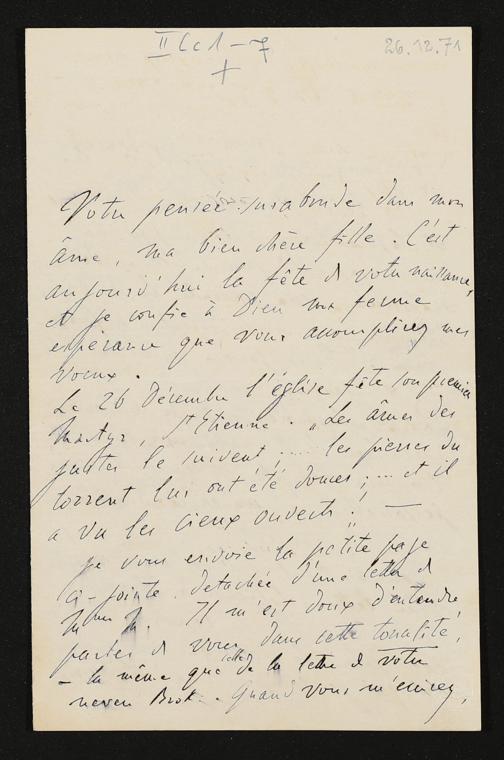 II Cc 1 – 7
26.12.71
Votre pensée surabonde dans mon
âme, ma bien chère fille. C'est
aujourd'hui la fête de votre naissance,
et je confie à Dieu ma ferme
espérance que vous accomplirez mes
voeux.
Le 26 Décembre l'église fête son premier
Martyr, St Etienne. „Les âmes des
justes le suivent; .... les pierres du
torrent lui ont été douces; ... et il
a vu les cieux ouverts!" —
Je vous envoie la petite page
ci-jointe, detachée d'une lettre de
Il m'est doux d'entendre
parler de vous dans cette tonalité,
– la même que celle de la lettre de votre
neveu . Quand vous m'écrirez,